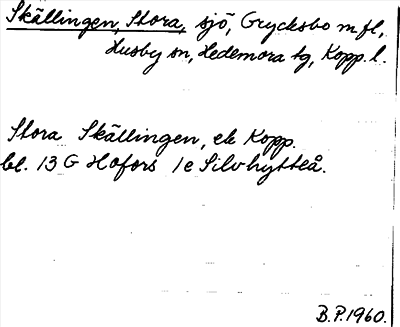 Skällingen, Stora, sjö, Grycksbo m fl,
Husby sn, Hedemora tg, Kopp. l.
Stora Skällingen, ek Kopp.
bl. 13 G Hofors 1e Silvhytteå.
B.P. 1960.